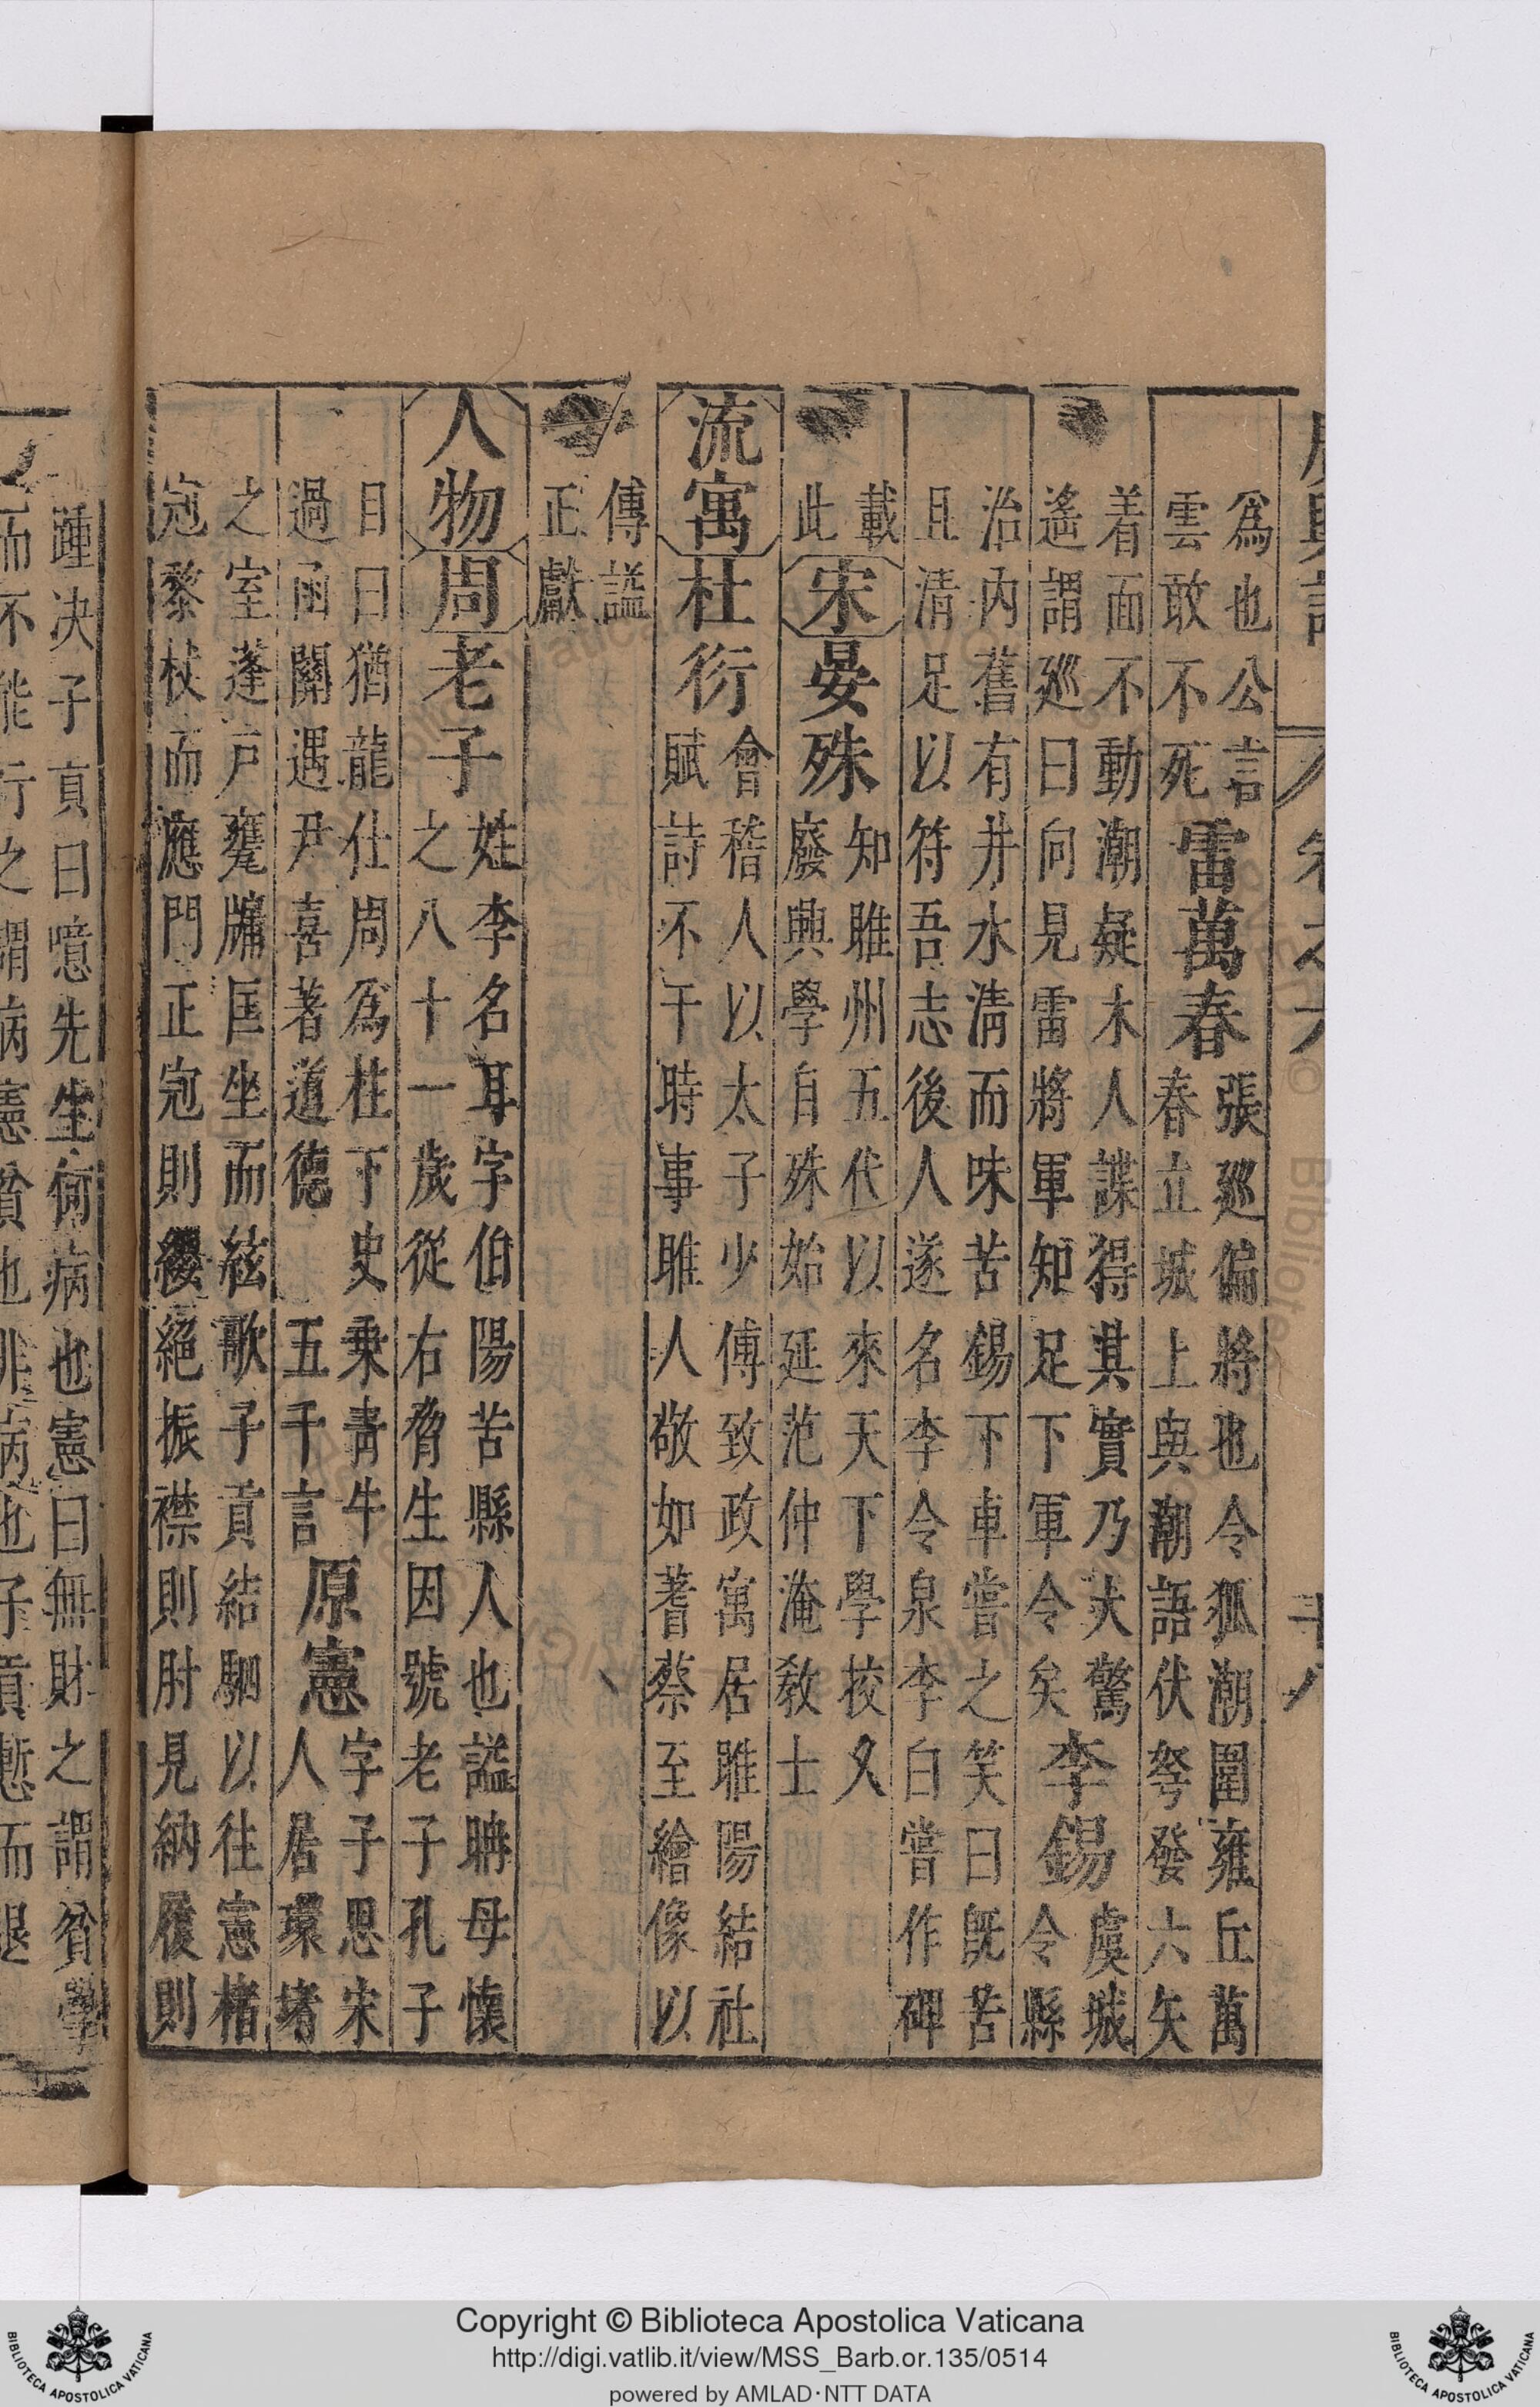 廣輿記 卷之六 十八
爲也公言
雲敢不死
雷萬春
張廵偏將也令狐潮圍雍丘萬
春立城上與潮語伏弩發六矢
着面不動潮疑木人諜得其實乃大驚
遙謂廵曰向見雷將軍知足下軍令矣
李錫
虞城
令縣
治内舊有井水清而味苦錫下車嘗之笑曰既苦
且清足以符吾志後人遂名李令泉李白嘗作碑
載
此
宋
晏殊
知雎州五代以來天下學挍久
廢興學自殊始延范仲淹敎士
流寓
杜衍
會稽人以太子少傅致政寓居雎陽結社
賦詩不干時事雎人敬如蓍蔡至繪像以
傳謚
正獻
人物
周
老子
姓李名耳字伯陽苦縣人也謚聃母懷
之八十一歲從右脅生因號老子孔子
目曰猶龍仕周爲柱下史乗青牛
過函關遇尹喜著道德五千言
原憲
字子思宋
人居環堵
之室蓬戸甕牖匡坐而絃歌子貢結駟以往憲楮
冠藜杖而應門正冠則纓絕振襟則肘見納履則
踵决子貢曰噫先生何病也憲曰無財之謂貧學
而不能行之謂病憲貧也非病也子貢慙而退
Copyright © Biblioteca Apostolica Vaticana
http://digi.vatlib.it/view/MSS_Barb.or.135/0514
powered by AMLAD·NTT DATA
BIBLIOTECA APOSTOLICA VATICANA
BIBLIOTECA APOSTOLICA VATICANA